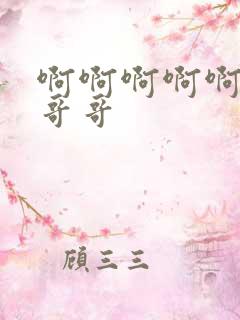 啊啊啊啊啊
哥哥
顾三三